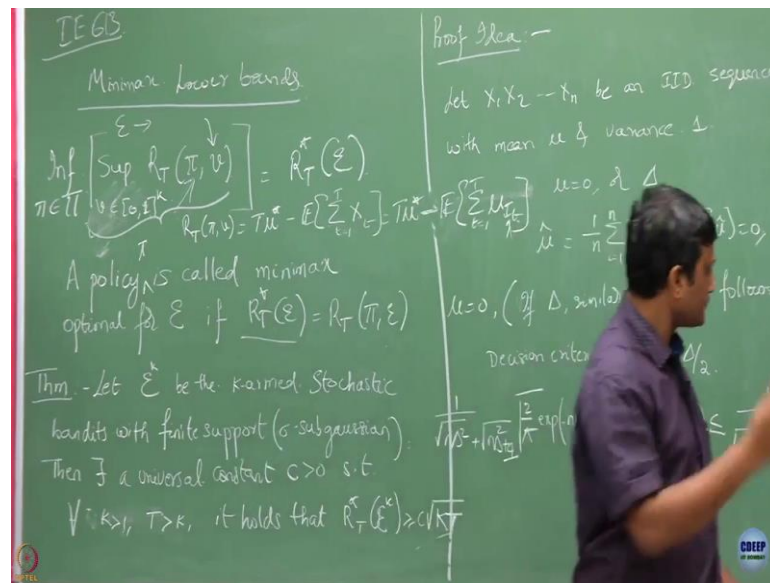 IE 613
Minimax Lower bounds
ε →
Inf π∈Π [ Sup v∈[0,1]^K R_T(π, v) ] = R*_T(ε).
R_T(π,v) = Tμ* − E{Σ_{t=1}^T X_t} = Tμ* − E{Σ_{t=1}^T μ_{I_t}}
A policy π is called minimax
optimal for ε if R*_T(ε) = R_T(π, ε)
Thm. - Let ε^K be the K-armed Stochastic
bandits with finite support (σ-subgaussian).
Then ∃ a universal constant C>0 s.t.
∀ K>1, T>K, it holds that R*_T(ε^K) ≥ C√KT
Proof Idea :-
Let X1 X2 --- Xn be an IID sequence
with mean μ & variance 1.
μ=0, or Δ
μ̂ = 1/n Σ^n =0,
μ=0, ( If Δ, follow
Decision criter Δ/2.
1 √2/π exp(-n ≤
CDEEP
IIT BOMBAY
NPTEL